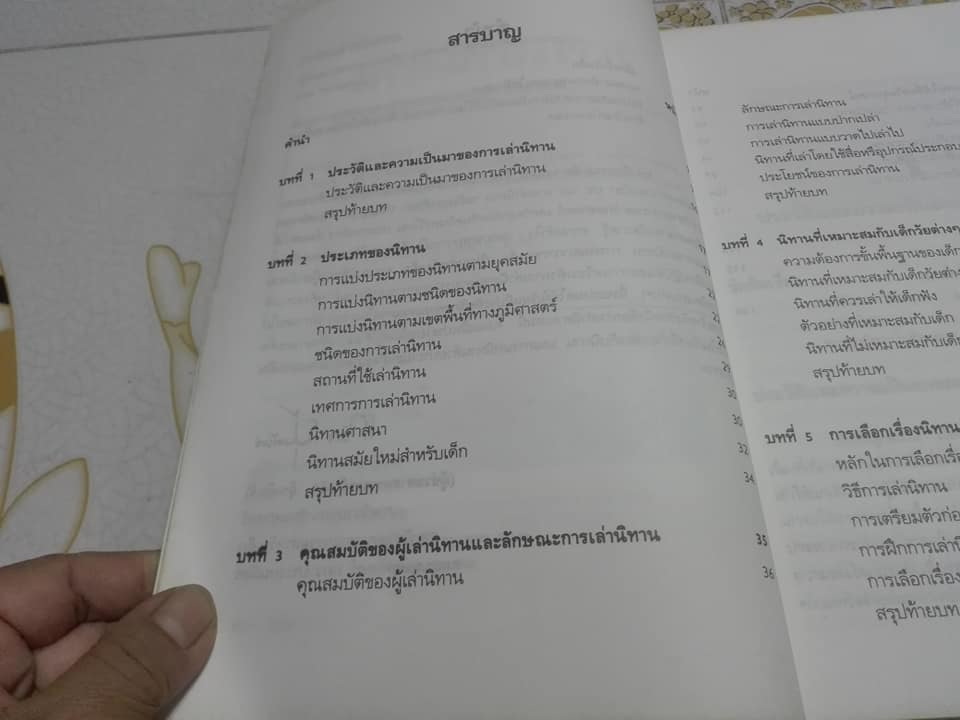 สารบาญ
คำนำ
บทที่ 1 ประวัติและความเป็นมาของการเล่านิทาน
ประวัติและความเป็นมาของการเล่านิทาน
สรุปท้ายบท
บทที่ 2 ประเภทของนิทาน
การแบ่งประเภทของนิทานตามยุคสมัย
การแบ่งนิทานตามชนิดของนิทาน
การแบ่งนิทานตามเขตพื้นที่ทางภูมิศาสตร์
ชนิดของการเล่านิทาน
สถานที่ใช้เล่านิทาน
เทศการการเล่านิทาน 30
นิทานศาสนา 30
นิทานสมัยใหม่สำหรับเด็ก 32
สรุปท้ายบท 34
บทที่ 3 คุณสมบัติของผู้เล่านิทานและลักษณะการเล่านิทาน 35
คุณสมบัติของผู้เล่านิทาน 36
ลักษณะการเล่านิทาน
การเล่านิทานแบบปากเปล่า
การเล่านิทานแบบวาดไปเล่าไป
นิทานที่เล่าโดยใช้สื่อหรืออุปกรณ์ประกอบ
ประโยชน์ของการเล่านิทาน
สรุปท้ายบท
บทที่ 4 นิทานที่เหมาะสมกับเด็กวัยต่างๆ
ความต้องการขั้นพื้นฐานของเด็ก
นิทานที่เหมาะสมกับเด็กวัยต่าง
นิทานที่ควรเล่าให้เด็กฟัง
ตัวอย่างที่เหมาะสมกับเด็ก
นิทานที่ไม่เหมาะสมกับเด็ก
สรุปท้ายบท
บทที่ 5 การเลือกเรื่องนิทาน
หลักในการเลือกเรื่
วิธีการเล่านิทาน
การเตรียมตัวก่อ
การฝึกการเล่านิ
การเลือกเรื่อง
สรุปท้ายบท